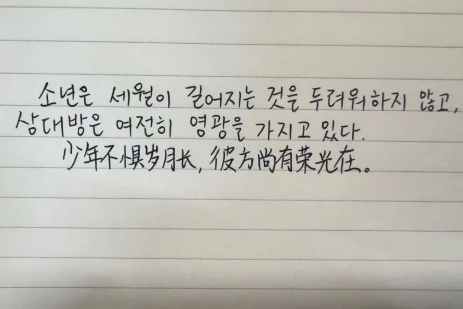 소년은 세월이 길어지는 것을 두려워하지 않고,
상대방은 여전히 영광을 가지고 있다.
少年不惧岁月长，彼方尚有荣光在。